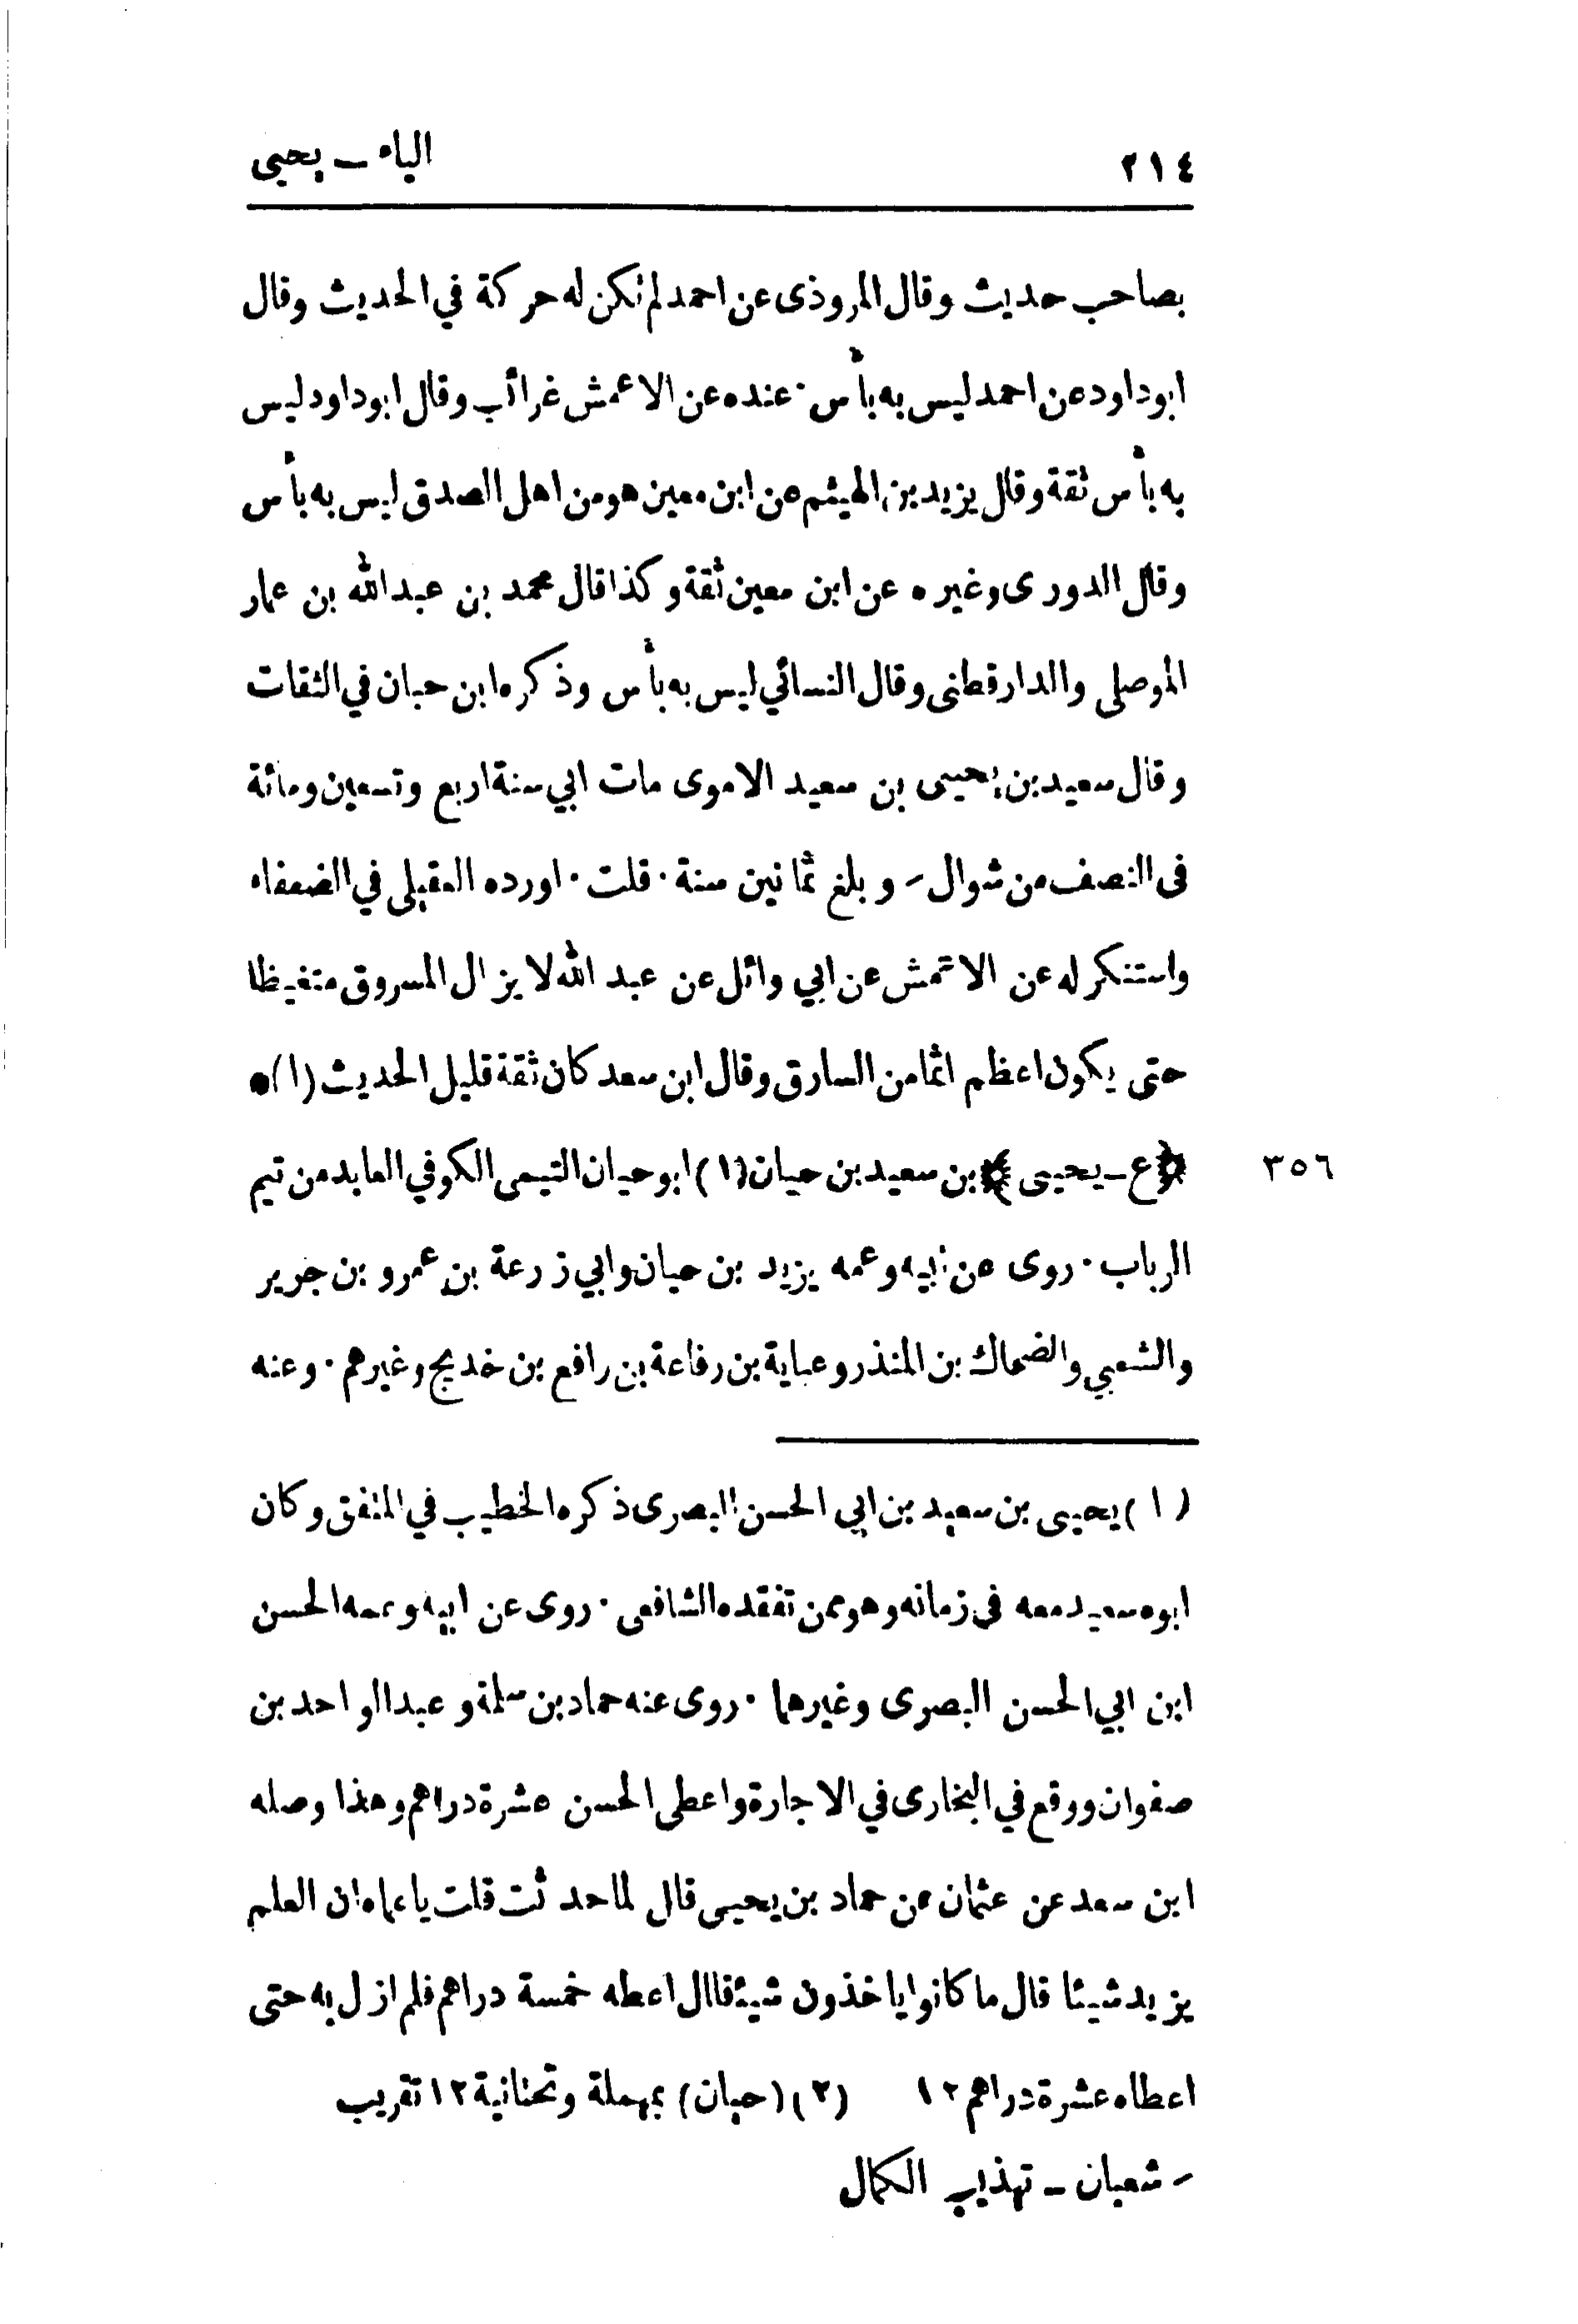 ٢١٤
الياء ــ يحيى
بصاحب حديث وقال المروذى عن احمد لم تكن له حركة في الحديث وقال
ابوداود عن احمد ليس به بأس· عنده عن الاعمش غرائب وقال ابوداود ليس
به بأس ثقة وقال يزيد بن الهيثم عن ابن معين هو من اهل الصدق ليس به بأس
وقال الدورى وغيره عن ابن معين ثقة وكذا قال محمد بن عبدالله بن عمار
الموصلى والدارقطنى وقال النسائي ليس به بأس وذكره ابن حبان في الثقات
وقال سعيد بن يحيى بن سعيد الاموى مات ابي سنة اربع وتسعين ومائة
فى النصف من شوال ؍ وبلغ ثمانين سنة· قلت· اورده العقيلى في الضعفاء
واستنكر له عن الاعمش عن ابي وائل عن عبد الله لا يزال المسروق متغيظا
حتى يكون اعظم اثما من السارق وقال ابن سعد كان ثقة قليل الحديث (١)●
٣٥٦
﴿ع ــ يحيى﴾ بن سعيد بن حيان (١) ابوحيان التيمى الكوفي العابد من تيم
الرباب· روى عن ابيه وعمه يزيد بن حيان وابي زرعة بن عمرو بن جرير
والشعبي والضحاك بن المنذر وعباية بن رفاعة بن رافع بن خديج وغيرهم· وعنه
(١) يحيى بن سعيد بن ابي الحسن البصرى ذكره الخطيب في المتفق وكان
ابوه سعيد معه فى زمانه وهو ممن تفقده الشافعى· روى عن ابيه وعمه الحسن
ابن ابي الحسن البصرى وغيرهما· روى عنه حماد بن سلمة و عبدالواحد بن
صفوان ووقع في البخارى في الاجارة واعطى الحسن عشرة دراهم وهذا وصله
ابن سعد عن عثمان عن حماد بن يحيى قال لما حدثت قلت ياعماه ان العلم
يزيد شيئا قال ما كانوا ياخذون شيئا قال اعطه خمسة دراهم فلم ازل به حتى
اعطاه عشرة دراهم ١٢ (٢) (حيان) بمهملة وتحتانية ١٢ تقريب
؍ شعبان ــ تهذيب الكمال